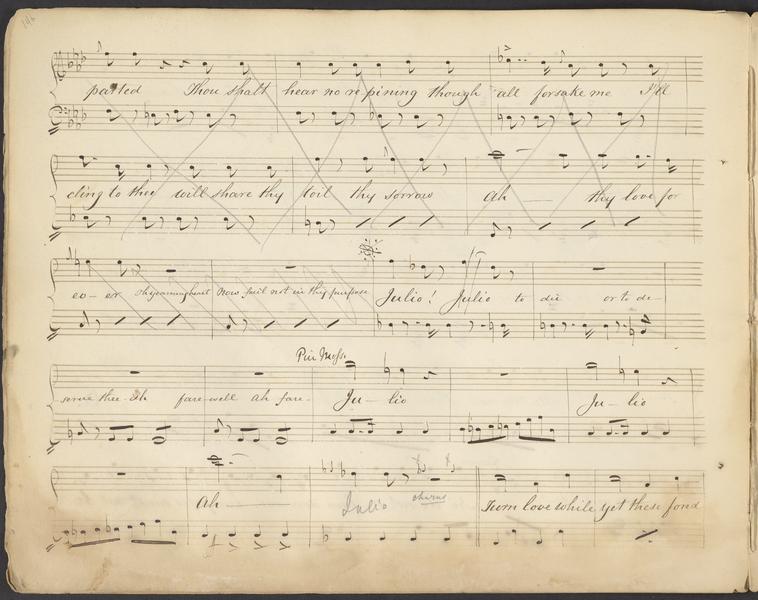 parted Thou shalt hear no repining though all forsake me I'll
cling to thee will share thy toil thy sorrow Ah thy love for
ev-er oh yearning heart now fail not in this purpose Julio! Julio to die or to de-
serve thee oh farewell ah fare-
Più Mosso
Ju-lio Ju-lio
Ah Julio chorus Turn love while yet these fond